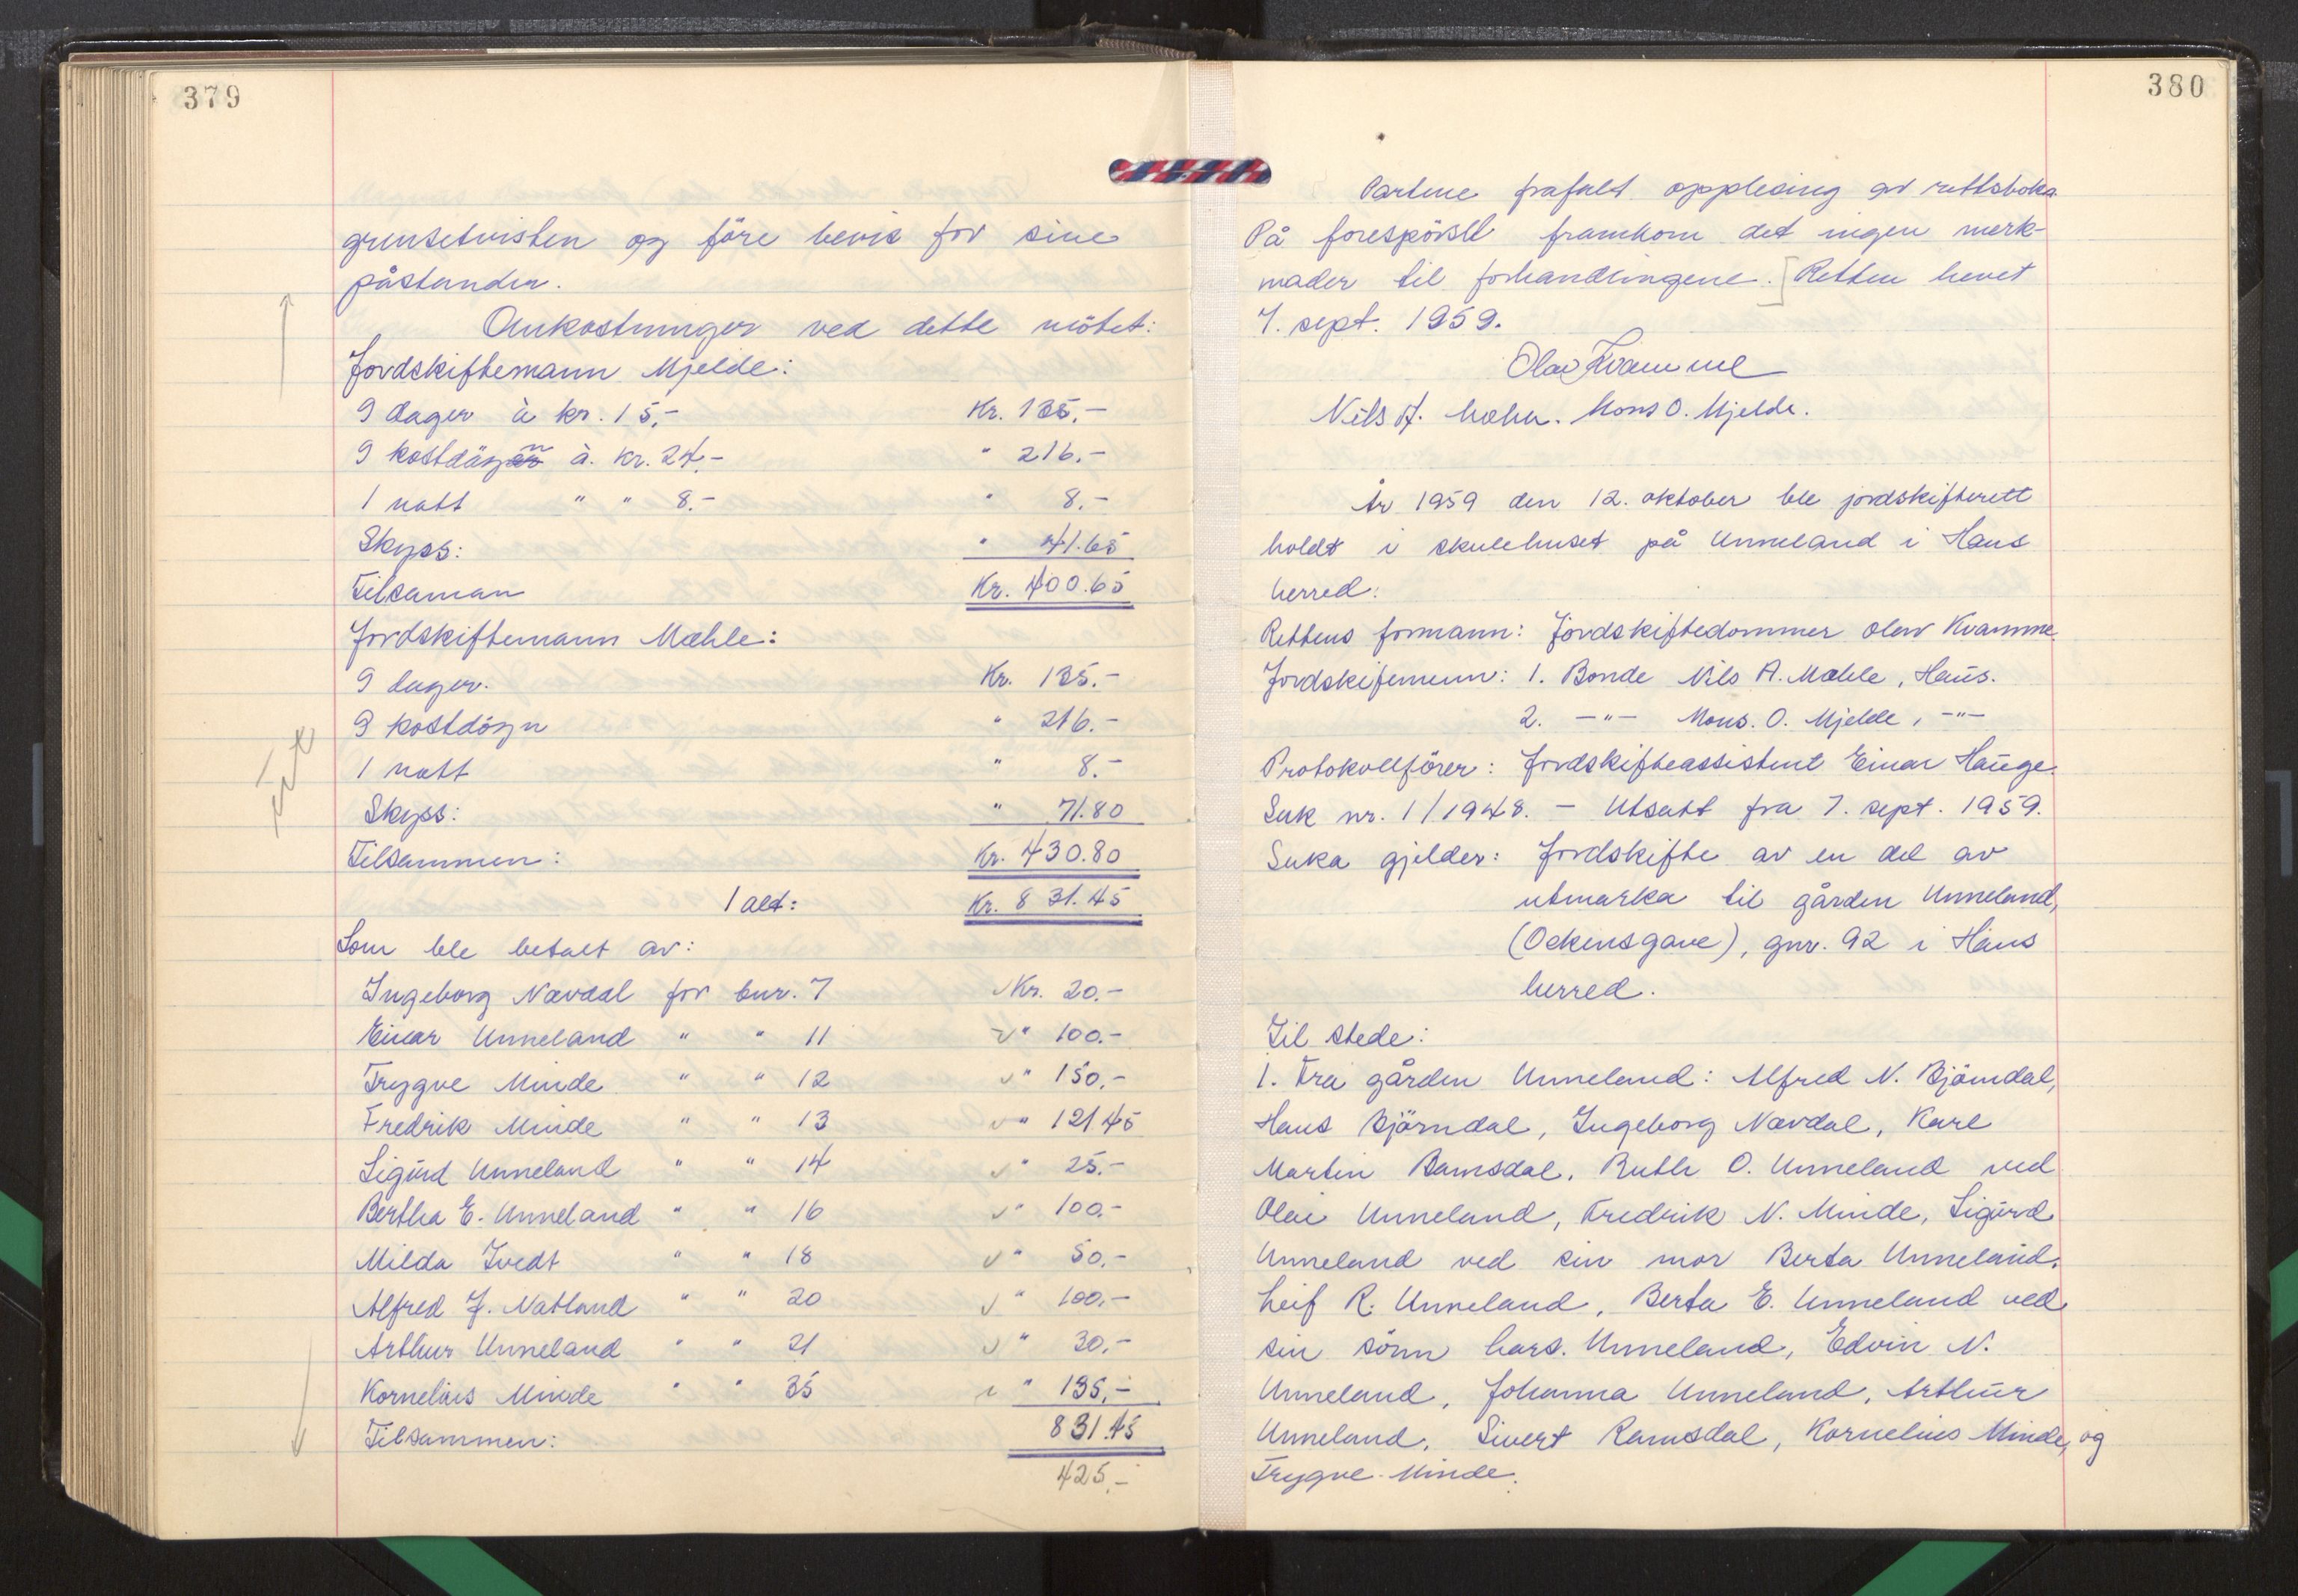 379
grensetvisten og före bevis for sine
påstander.
Omkostninger ved dette mötet:
Jordskiftemann Mjelde:
9 dager à kr. 15,- Kr. 135,-
9 kostdögn à. kr. 24,- " 216.-
1 natt " " 8.- " 8.-
Skyss: " 41.65
Tilsaman Kr. 400.65
Jordskiftemann Mæhle:
9 dager. Kr. 135.-
9 kostdögn " 216.-
1 natt " 8.-
Skyss: " 71.80
Tilsammen: Kr. 430.80
I alt: Kr. 831.45
Som ble betalt av:
Ingeborg Navdal for bnr. 7 Kr. 20.-
Einar Unneland " " 11 " 100.-
Trygve Minde " " 12 " 150,-
Fredrik Minde " " 13 " 121.45
Sigurd Unneland " " 14 " 25.-
Bertha E. Unneland " " 16 " 100.-
Milda Tvedt " " 18 " 50,-
Alfred J. Natland " " 20 " 100,-
Arthur Unneland " " 21 " 30,-
Kornelius Minde " " 35 " 135,-
Tilsammen: 831.45
425,-
380
Partene frafalt opplesing av rettsboka.
På forespörsel framkom det ingen merk-
nader til forhandlingene. Retten hevet
7. sept. 1959.
Olav Kvamme
Nils A. Mæhle. Mons O. Mjelde.
År 1959 den 12. oktober ble jordskifterett
holdt i skulehuset på Unneland i Haus
herred:
Rettens formann: Jordskiftedommer Olav Kvamme.
Jordskiftemenn: 1. Bonde Nils A. Mæhle, Haus.
2. -"- Mons. O. Mjelde, -"-
Protokollförer: Jordskifteassistent Einar Hauge.
Sak nr. 1/1948. - Utsatt fra 7. sept. 1959.
Saka gjelder: Jordskifte av en del av
utmarka til gården Unneland,
(Ockensgave), gnr. 92 i Haus
herred.
Til stede:
1. Fra gården Unneland: Alfred N. Björndal,
Hans Björndal, Ingeborg Navdal, Karl
Martin Ramsdal, Ruth O. Unneland ved
Olai Unneland, Fredrik N. Minde, Sigurd
Unneland ved sin mor Berta Unneland.
Leif R. Unneland, Berta E. Unneland ved
sin sönn Lars. Unneland, Edvin N.
Unneland, Johanna Unneland, Arthur
Unneland, Sivert Ramsdal, Kornelius Minde, og
Trygve Minde.